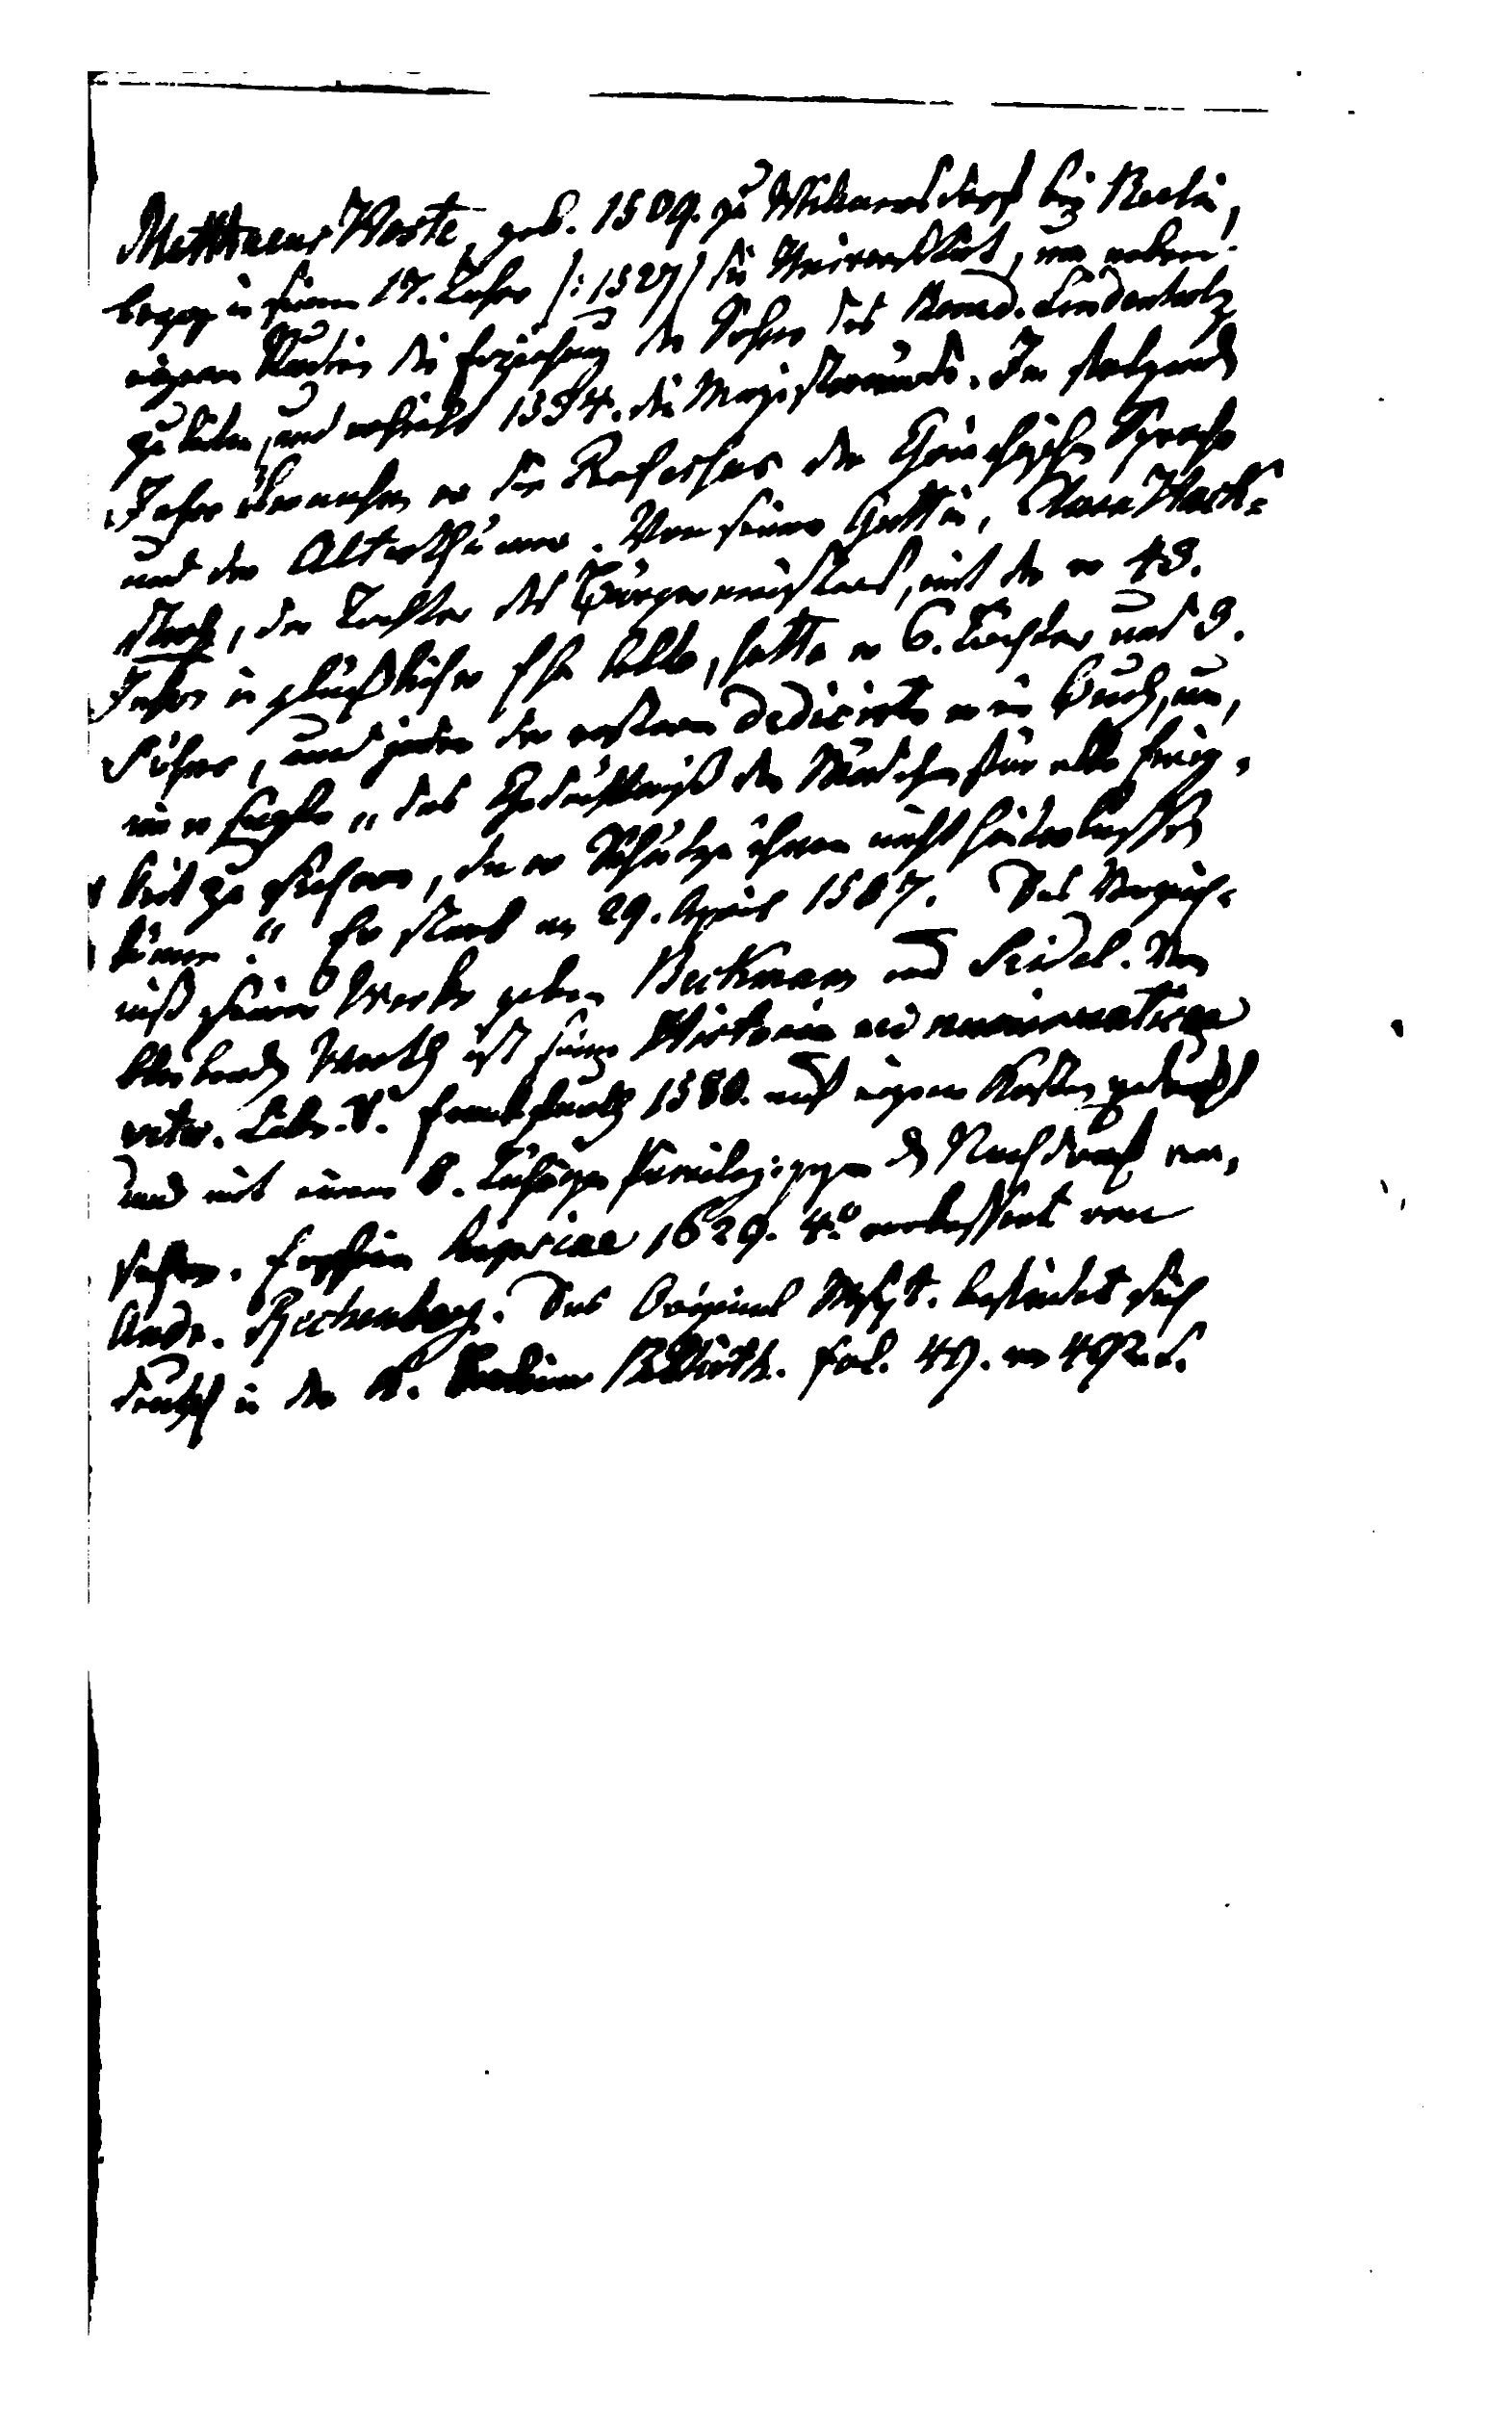 Matthaeus Hoste, geb. 1509. zu Wilmersdorf bey Berlin,
bezog in seinem 17. Jahre /: 1527 / die Universität, um neben
eigenen Studien die Erziehung der Söhne des Bernd. Lindenholz
zu leiten, und erhielt 1534. die Magisterwürde. Im folgenden
Jahre übernahm er die Professur der Griechischen Sprache
und der Alterthümer. Von seiner Gattin, Clara Wack=
, der Tochter des Bürgermeisters, mit der er 48.
Jahre in glücklicher Ehe lebte, hatte er 6. Töchter und 3.
Söhne, und jeder der erstern dedicirte er ein Buch, um,
wie er sagte „das Gedächtniß der Mädchen für alle Ewig,
keit zu sichern, da er Schätze ihnen nicht hinterlassen
könne." Er starb am 29. April 1587. Das Verzeich=
niß seiner Werke geben Beckmann und Seidel. Von
bleibendem Werth ist seine Historia rei nummariae
veter. Lib. V. Frankfurth 1580. auf eigene Kosten gedruckt
und mit einem 8. Jährigen Privileg: gegen den Nachdruck ver,
sehen. Erschien Lipsiae 1629. 4.º verbessert von
Andr. Rechenberg. Das Original Mscpt. befindet sich
deutsch in der K. Berliner Biblioth. fol. 49.